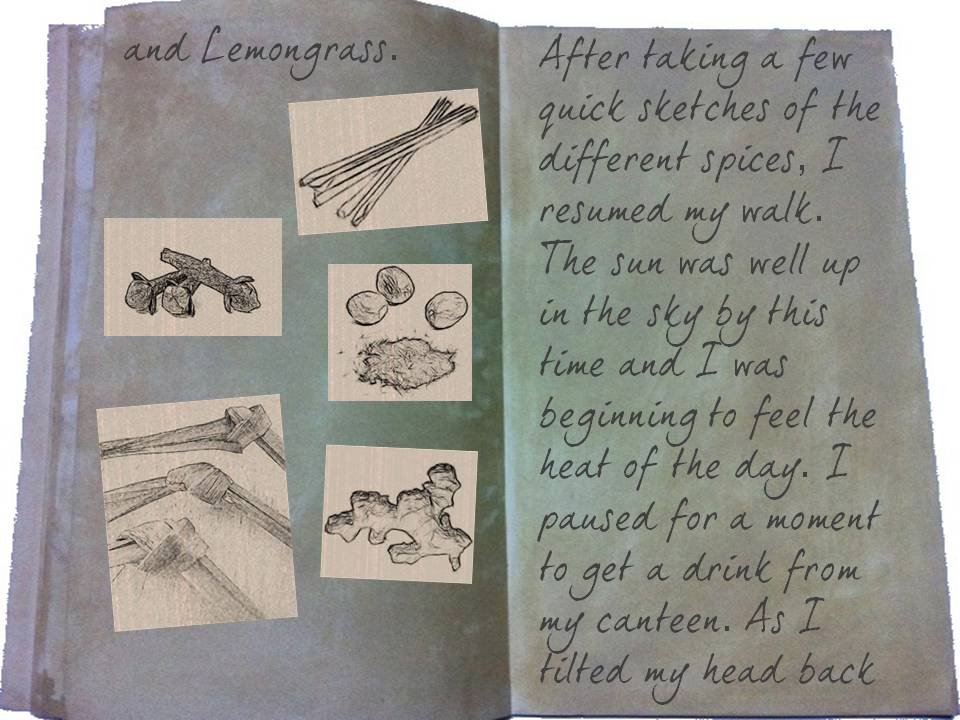 and Lemongrass.
After taking a few
quick sketches of the
different spices, I
resumed my walk.
The sun was well up
in the sky by this
time and I was
beginning to feel the
heat of the day. I
paused for a moment
to get a drink from
my canteen. As I
tilted my head back